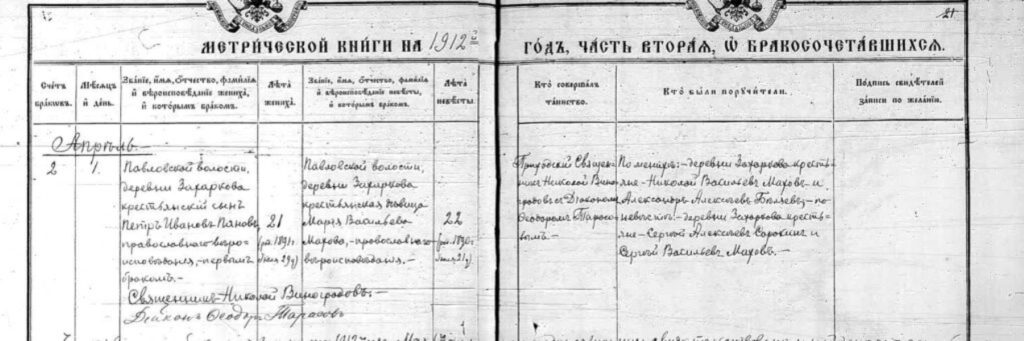 МЕТРИЧЕСКОЙ КНИГИ НА 1912
ГОДЪ, ЧАСТЬ ВТОРАЯ, Ѿ БРАКОСОЧЕТАВШИХСЯ.
21
Счетъ браковъ.
Мѣсяцъ и день.
Званіе, имя, отчество, фамилія
и вѣроисповѣданіе жениха,
и которымъ бракомъ.
Лѣта жениха.
Званіе, имя, отчество, фамилія
и вѣроисповѣданіе невѣсты,
и которымъ бракомъ.
Лѣта невѣсты.
Кто совершалъ
таинство.
Кто были поручители.
Подпись свидѣтелей
записи по желанію.
Апрѣль
2
1.
Павловской волости,
деревни Захаркова
крестьянскій сынъ
Петръ Ивановъ
православнаго вѣро-
исповѣданія, - первымъ
бракомъ. -
21
Павловской волости,
деревни Захаркова
крестьянская дѣвица
Марія Васильева
Махова, - православнаго
вѣроисповѣданія. -
22
Приходскій Священ-
никъ Николай Вино-
градовъ съ Діакономъ
Ѳеодоромъ Тарасо-
вымъ. -
По женихѣ: - деревни Захаркова кресть-
яне - Николай Васильевъ Маховъ и
Александръ Алексѣевъ - по
невѣстѣ: - деревни Захаркова кресть-
яне - Сергѣй Алексѣевъ Сорокинъ и
Сергѣй Васильевъ Маховъ. -
Священникъ Николай Виноградовъ. -
Діаконъ Ѳеодоръ Тарасовъ